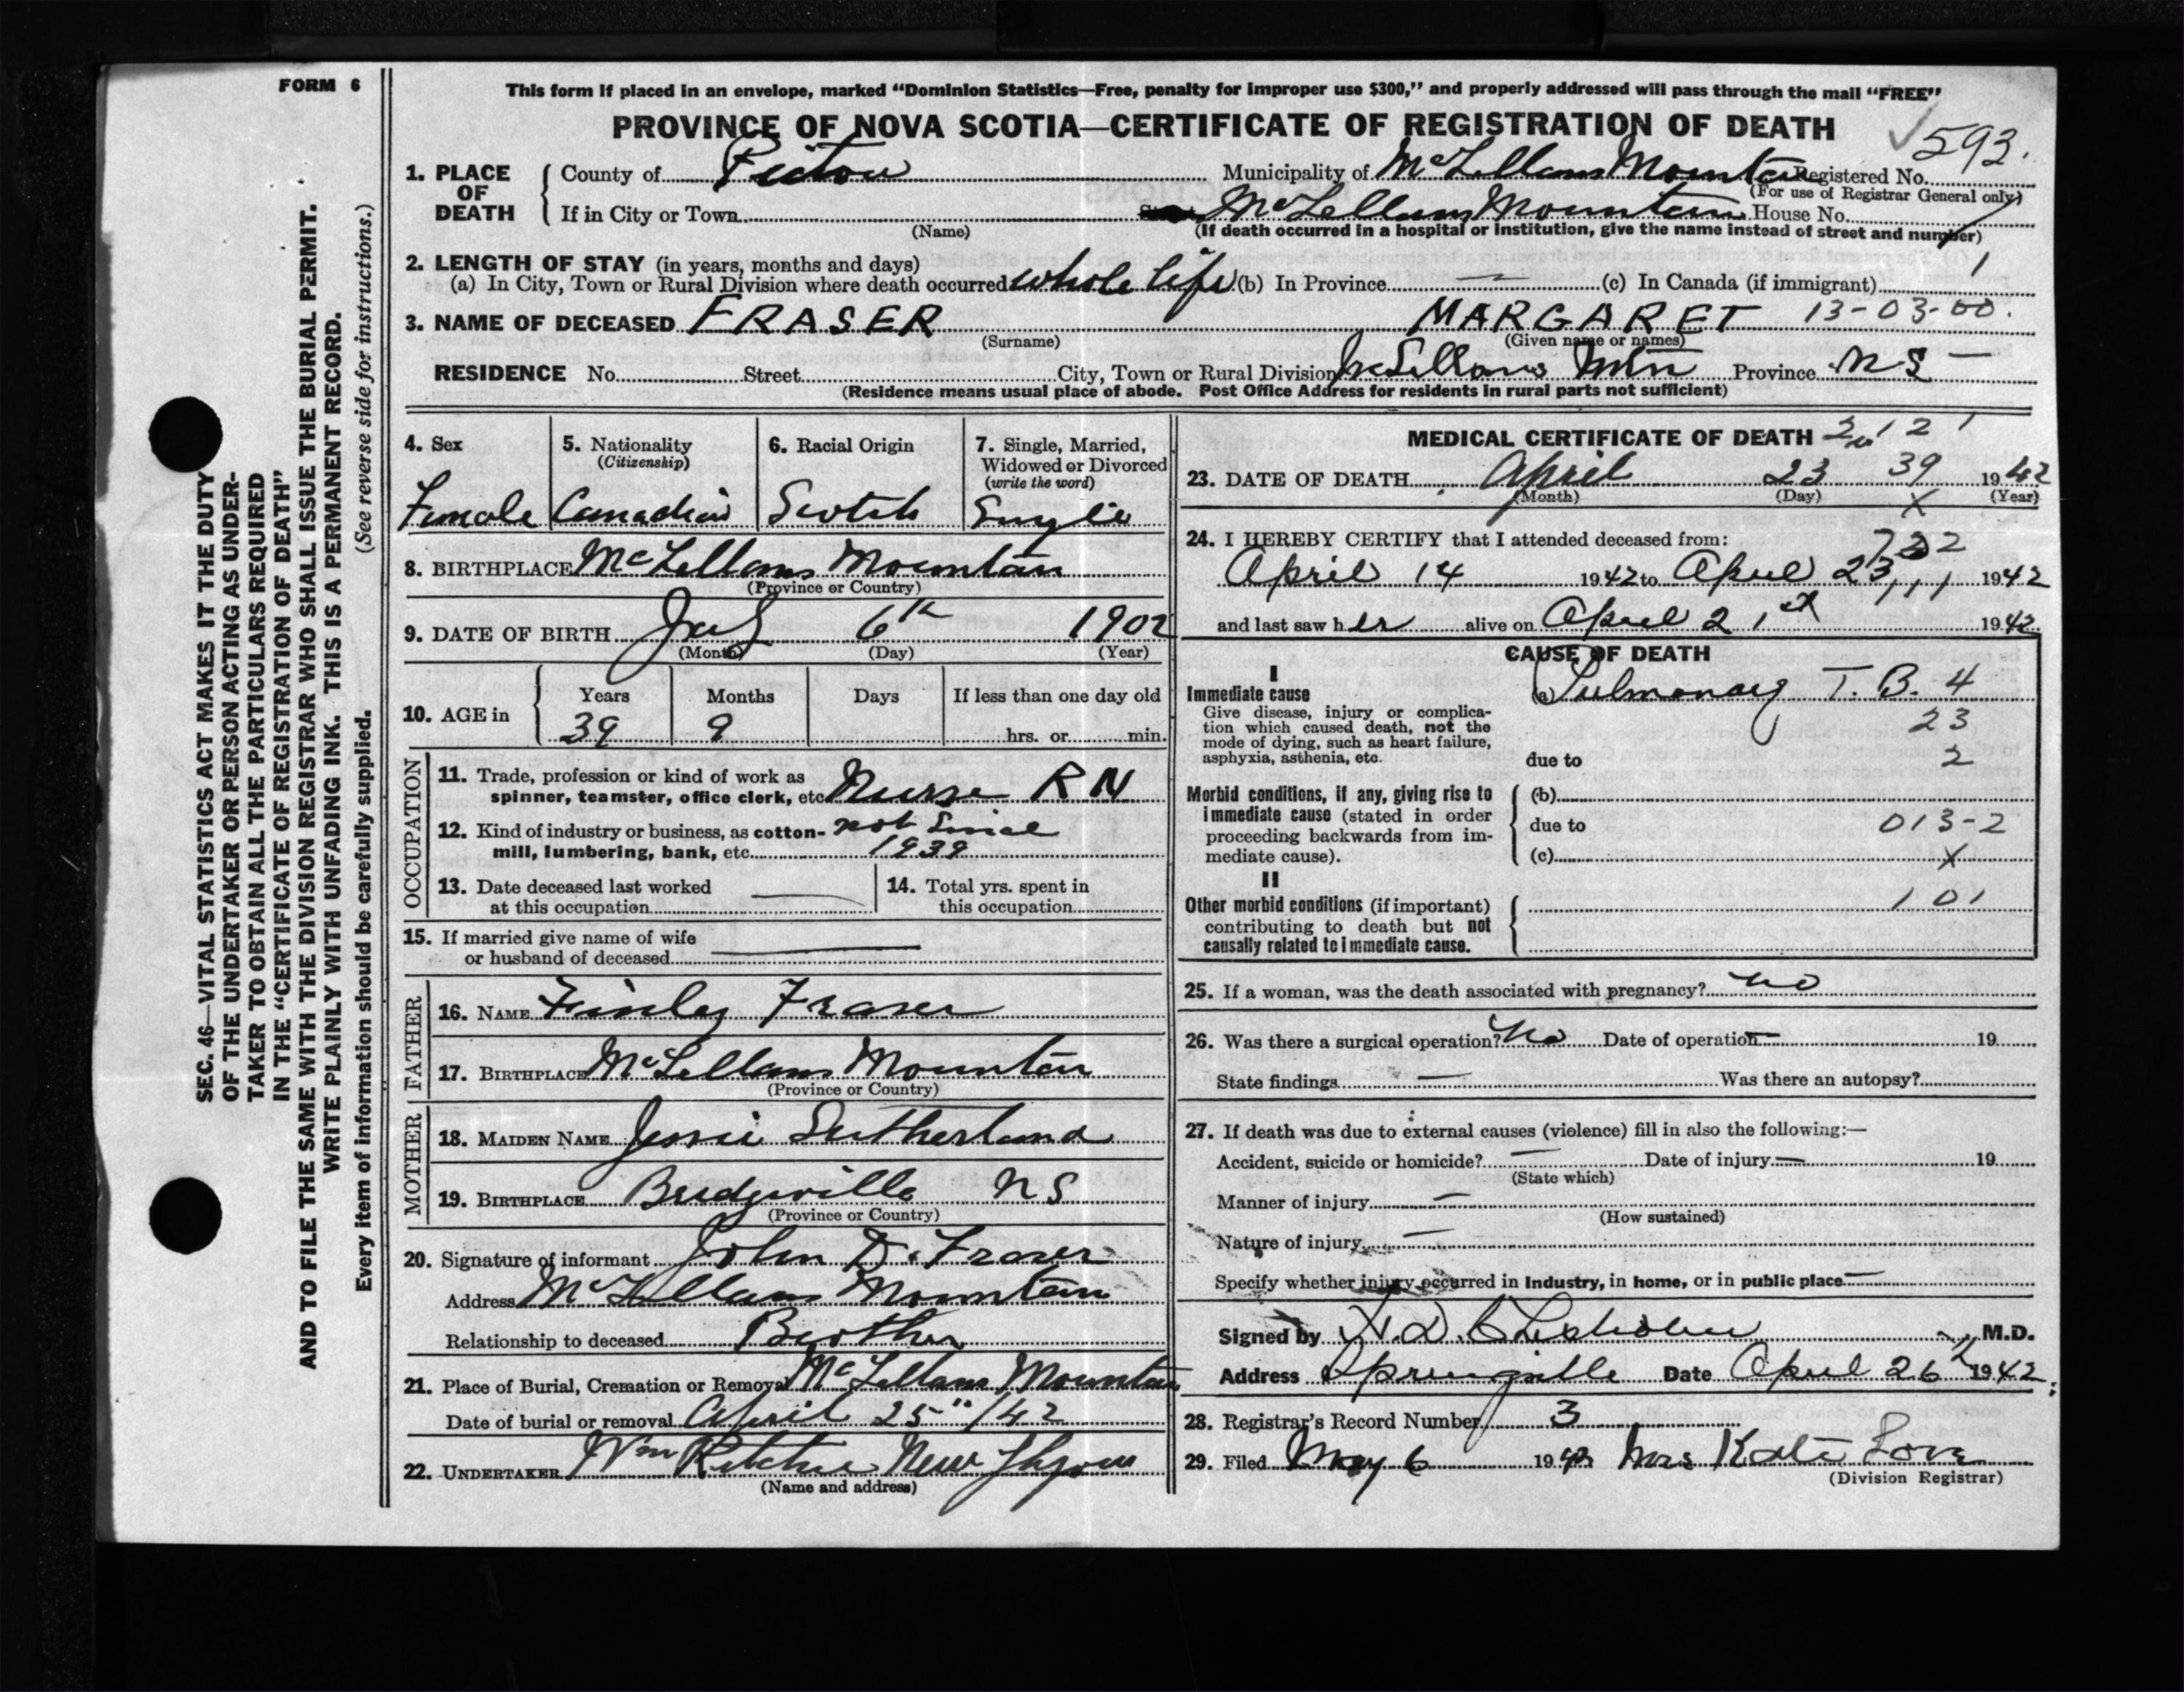 FORM 6
This form if placed in an envelope, marked “Dominion Statistics—Free, penalty for improper use $300,” and properly addressed will pass through the mail “FREE”
PROVINCE OF NOVA SCOTIA—CERTIFICATE OF REGISTRATION OF DEATH
593.
1. PLACE OF DEATH
County of Pictou Municipality of McLellans Mountain Registered No.
(For use of Registrar General only)
If in City or Town McLellans Mountain House No.
(Name) (If death occurred in a hospital or institution, give the name instead of street and number)
2. LENGTH OF STAY (in years, months and days)
(a) In City, Town or Rural Division where death occurred whole life (b) In Province — (c) In Canada (if immigrant) 1
3. NAME OF DECEASED FRASER MARGARET 13-03-00.
(Surname) (Given name or names)
RESIDENCE No. Street City, Town or Rural Division McLellans Mtn Province N S —
(Residence means usual place of abode. Post Office Address for residents in rural parts not sufficient)
4. Sex
Female
5. Nationality
(Citizenship)
Canadian
6. Racial Origin
Scotch
7. Single, Married,
Widowed or Divorced
(write the word)
Single
8. BIRTHPLACE McLellans Mountain
(Province or Country)
9. DATE OF BIRTH 6th 1902
(Month) (Day) (Year)
10. AGE in
Years Months Days If less than one day old
39 9 hrs. or min.
OCCUPATION
11. Trade, profession or kind of work as
spinner, teamster, office clerk, etc. Nurse R N
12. Kind of industry or business, as cotton- not Since
mill, lumbering, bank, etc. 1939
13. Date deceased last worked
at this occupation —
14. Total yrs. spent in
this occupation
15. If married give name of wife
or husband of deceased —
FATHER
16. NAME Finley Fraser
17. BIRTHPLACE McLellans Mountain
(Province or Country)
MOTHER
18. MAIDEN NAME Jessie Sutherland
19. BIRTHPLACE Bridgeville N S
(Province or Country)
20. Signature of informant John D. Fraser
Address McLellans Mountain
Relationship to deceased Brother
21. Place of Burial, Cremation or Removal McLellans Mountain
Date of burial or removal April 25"/42
22. UNDERTAKER Wm Ritchie New
(Name and address)
MEDICAL CERTIFICATE OF DEATH
23. DATE OF DEATH April 23 39 1942
(Month) (Day) X (Year)
24. I HEREBY CERTIFY that I attended deceased from:
April 14 1942 to April 23 1942
and last saw her alive on April 21st 1942
CAUSE OF DEATH
I
Immediate cause
Give disease, injury or complica-
tion which caused death, not the
mode of dying, such as heart failure,
asphyxia, asthenia, etc.
(a) Pulmonary T. B. 4
23
due to 2
Morbid conditions, if any, giving rise to
immediate cause (stated in order
proceeding backwards from im-
mediate cause).
(b)
due to 013-2
(c) X
II
Other morbid conditions (if important)
contributing to death but not
causally related to immediate cause.
101
25. If a woman, was the death associated with pregnancy? no
26. Was there a surgical operation? No Date of operation — 19
State findings — Was there an autopsy?
27. If death was due to external causes (violence) fill in also the following:—
Accident, suicide or homicide? — Date of injury — 19
(State which)
Manner of injury —
(How sustained)
Nature of injury —
Specify whether injury occurred in Industry, in home, or in public place —
Signed by M.D.
Address Springville Date April 26 1942
28. Registrar's Record Number 3
29. Filed May 6 1942 Mrs Kate
(Division Registrar)
SEC. 46—VITAL STATISTICS ACT MAKES IT THE DUTY
OF THE UNDERTAKER OR PERSON ACTING AS UNDER-
TAKER TO OBTAIN ALL THE PARTICULARS REQUIRED
IN THE “CERTIFICATE OF REGISTRATION OF DEATH”
AND TO FILE THE SAME WITH THE DIVISION REGISTRAR WHO SHALL ISSUE THE BURIAL PERMIT.
WRITE PLAINLY WITH UNFADING INK. THIS IS A PERMANENT RECORD.
Every item of information should be carefully supplied. (See reverse side for instructions.)